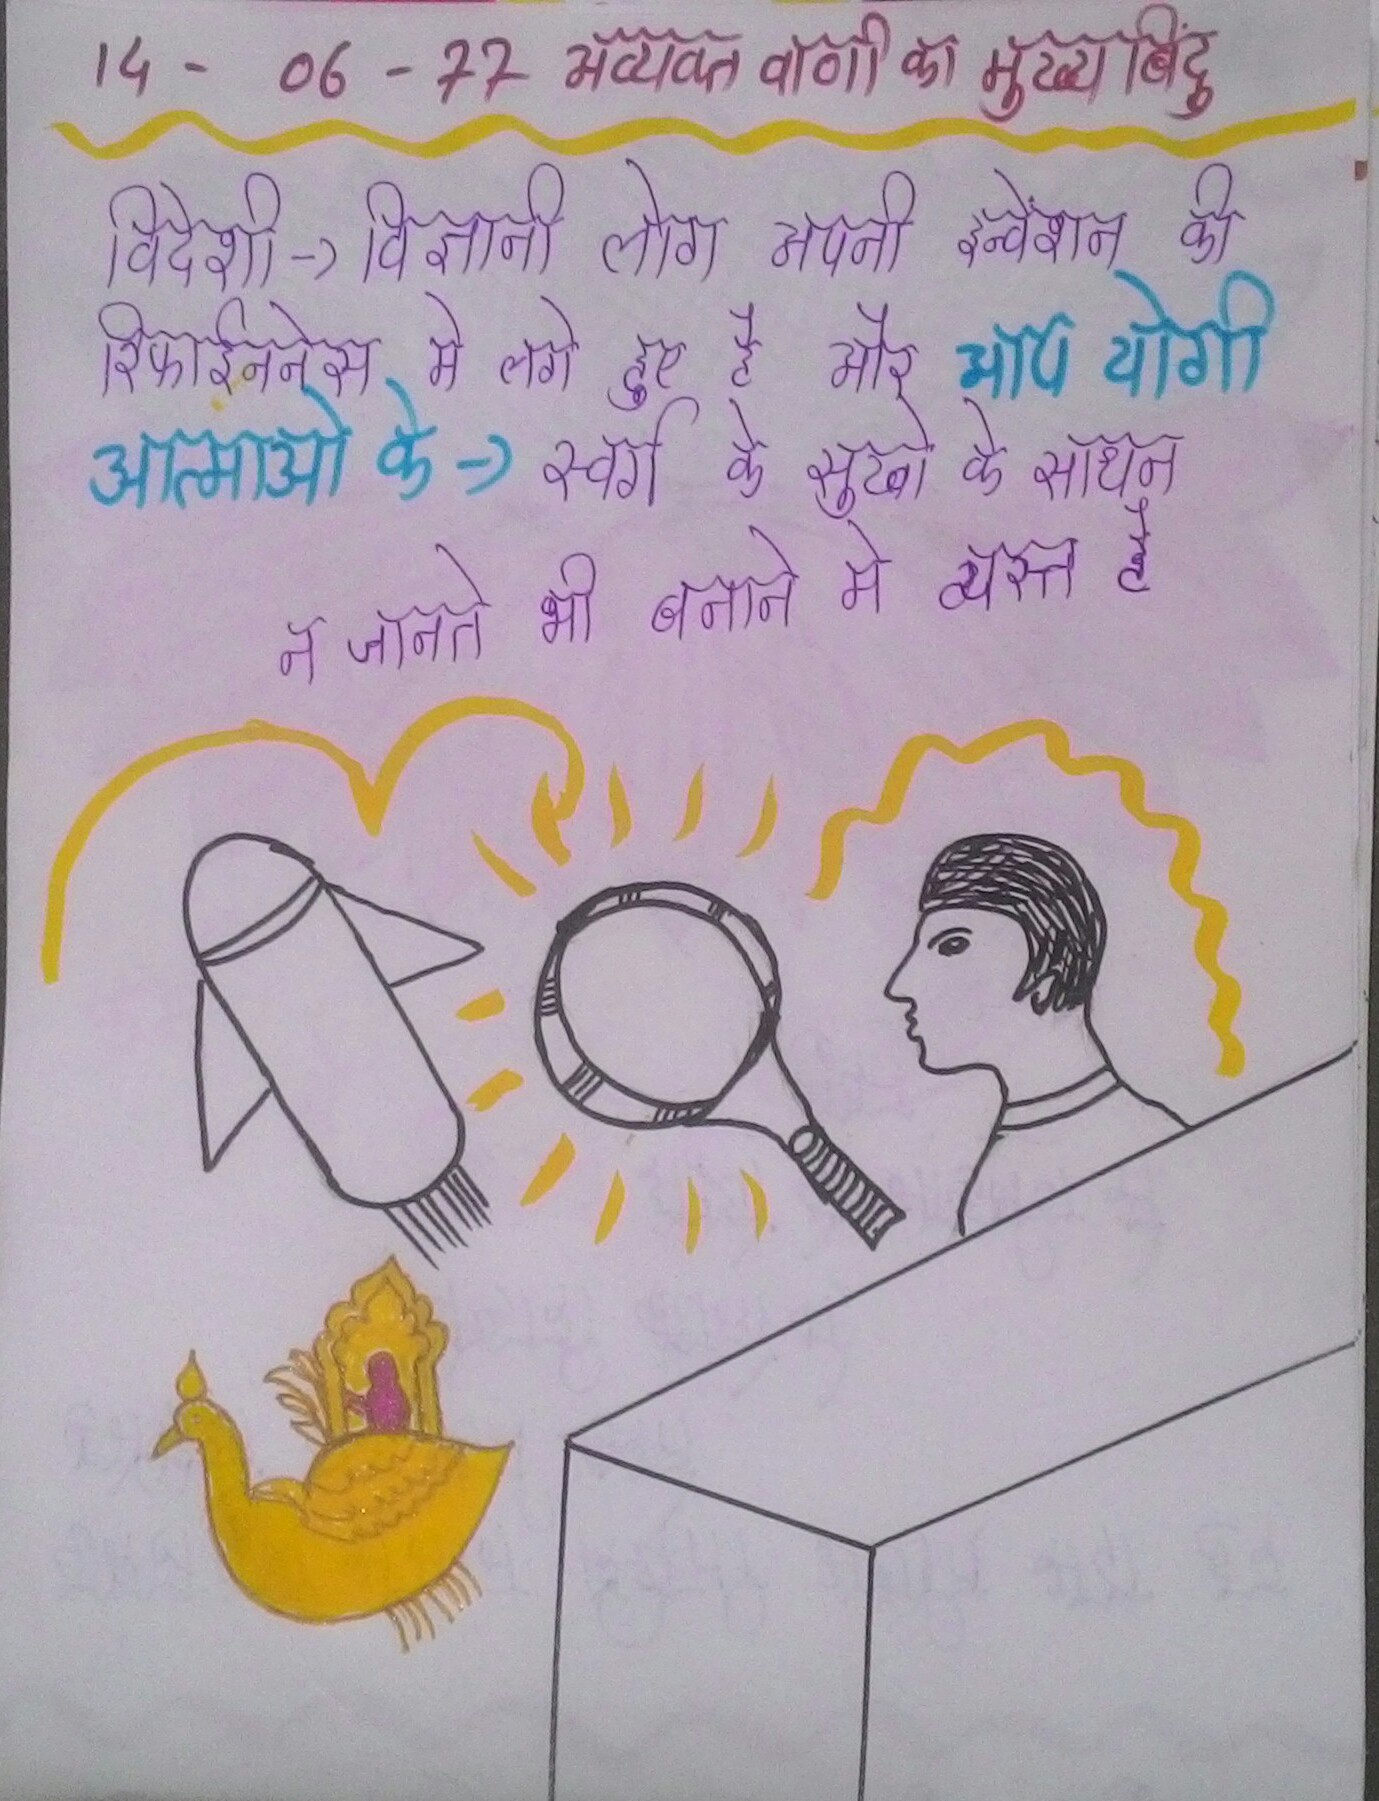 14 - 06 - 77 अव्यक्त वाणी का मुख्य बिंदु
विदेशी -> विज्ञानी लोग अपनी इन्वेंशन की
रिफाईननेस में लगे हुए है और आप योगी
आत्माओ के -> स्वर्ग के सुखो के साधन
न जानते भी बनाने मे व्यस्त है